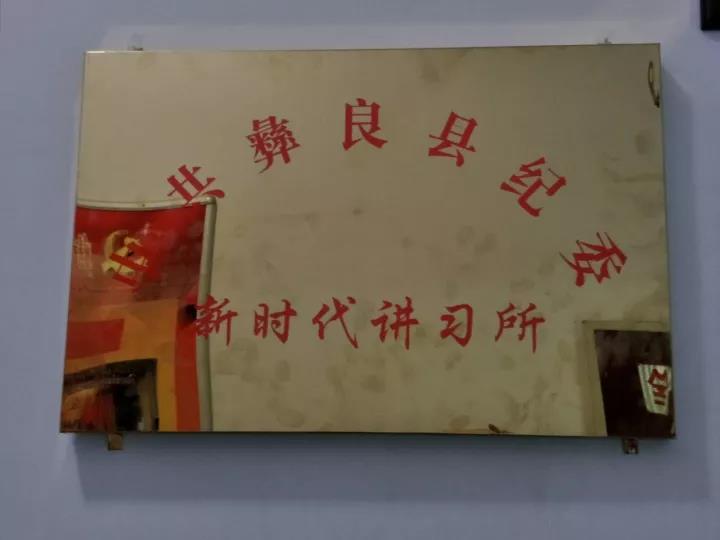 中共彝良县纪委
新时代讲习所